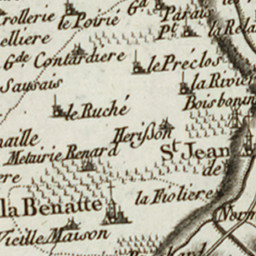 Trollerie
le Poirie
Gd
Parais
Pt
la Rela
elliere
Gde Contardiere
le Préclos
Saussais
la Rivier
Boisbonin
le Ruché
naille
Herisson
Metairie Renard
St Jean
de
ere
la Fioliere
la Benatte
Norm
Vieille Maison